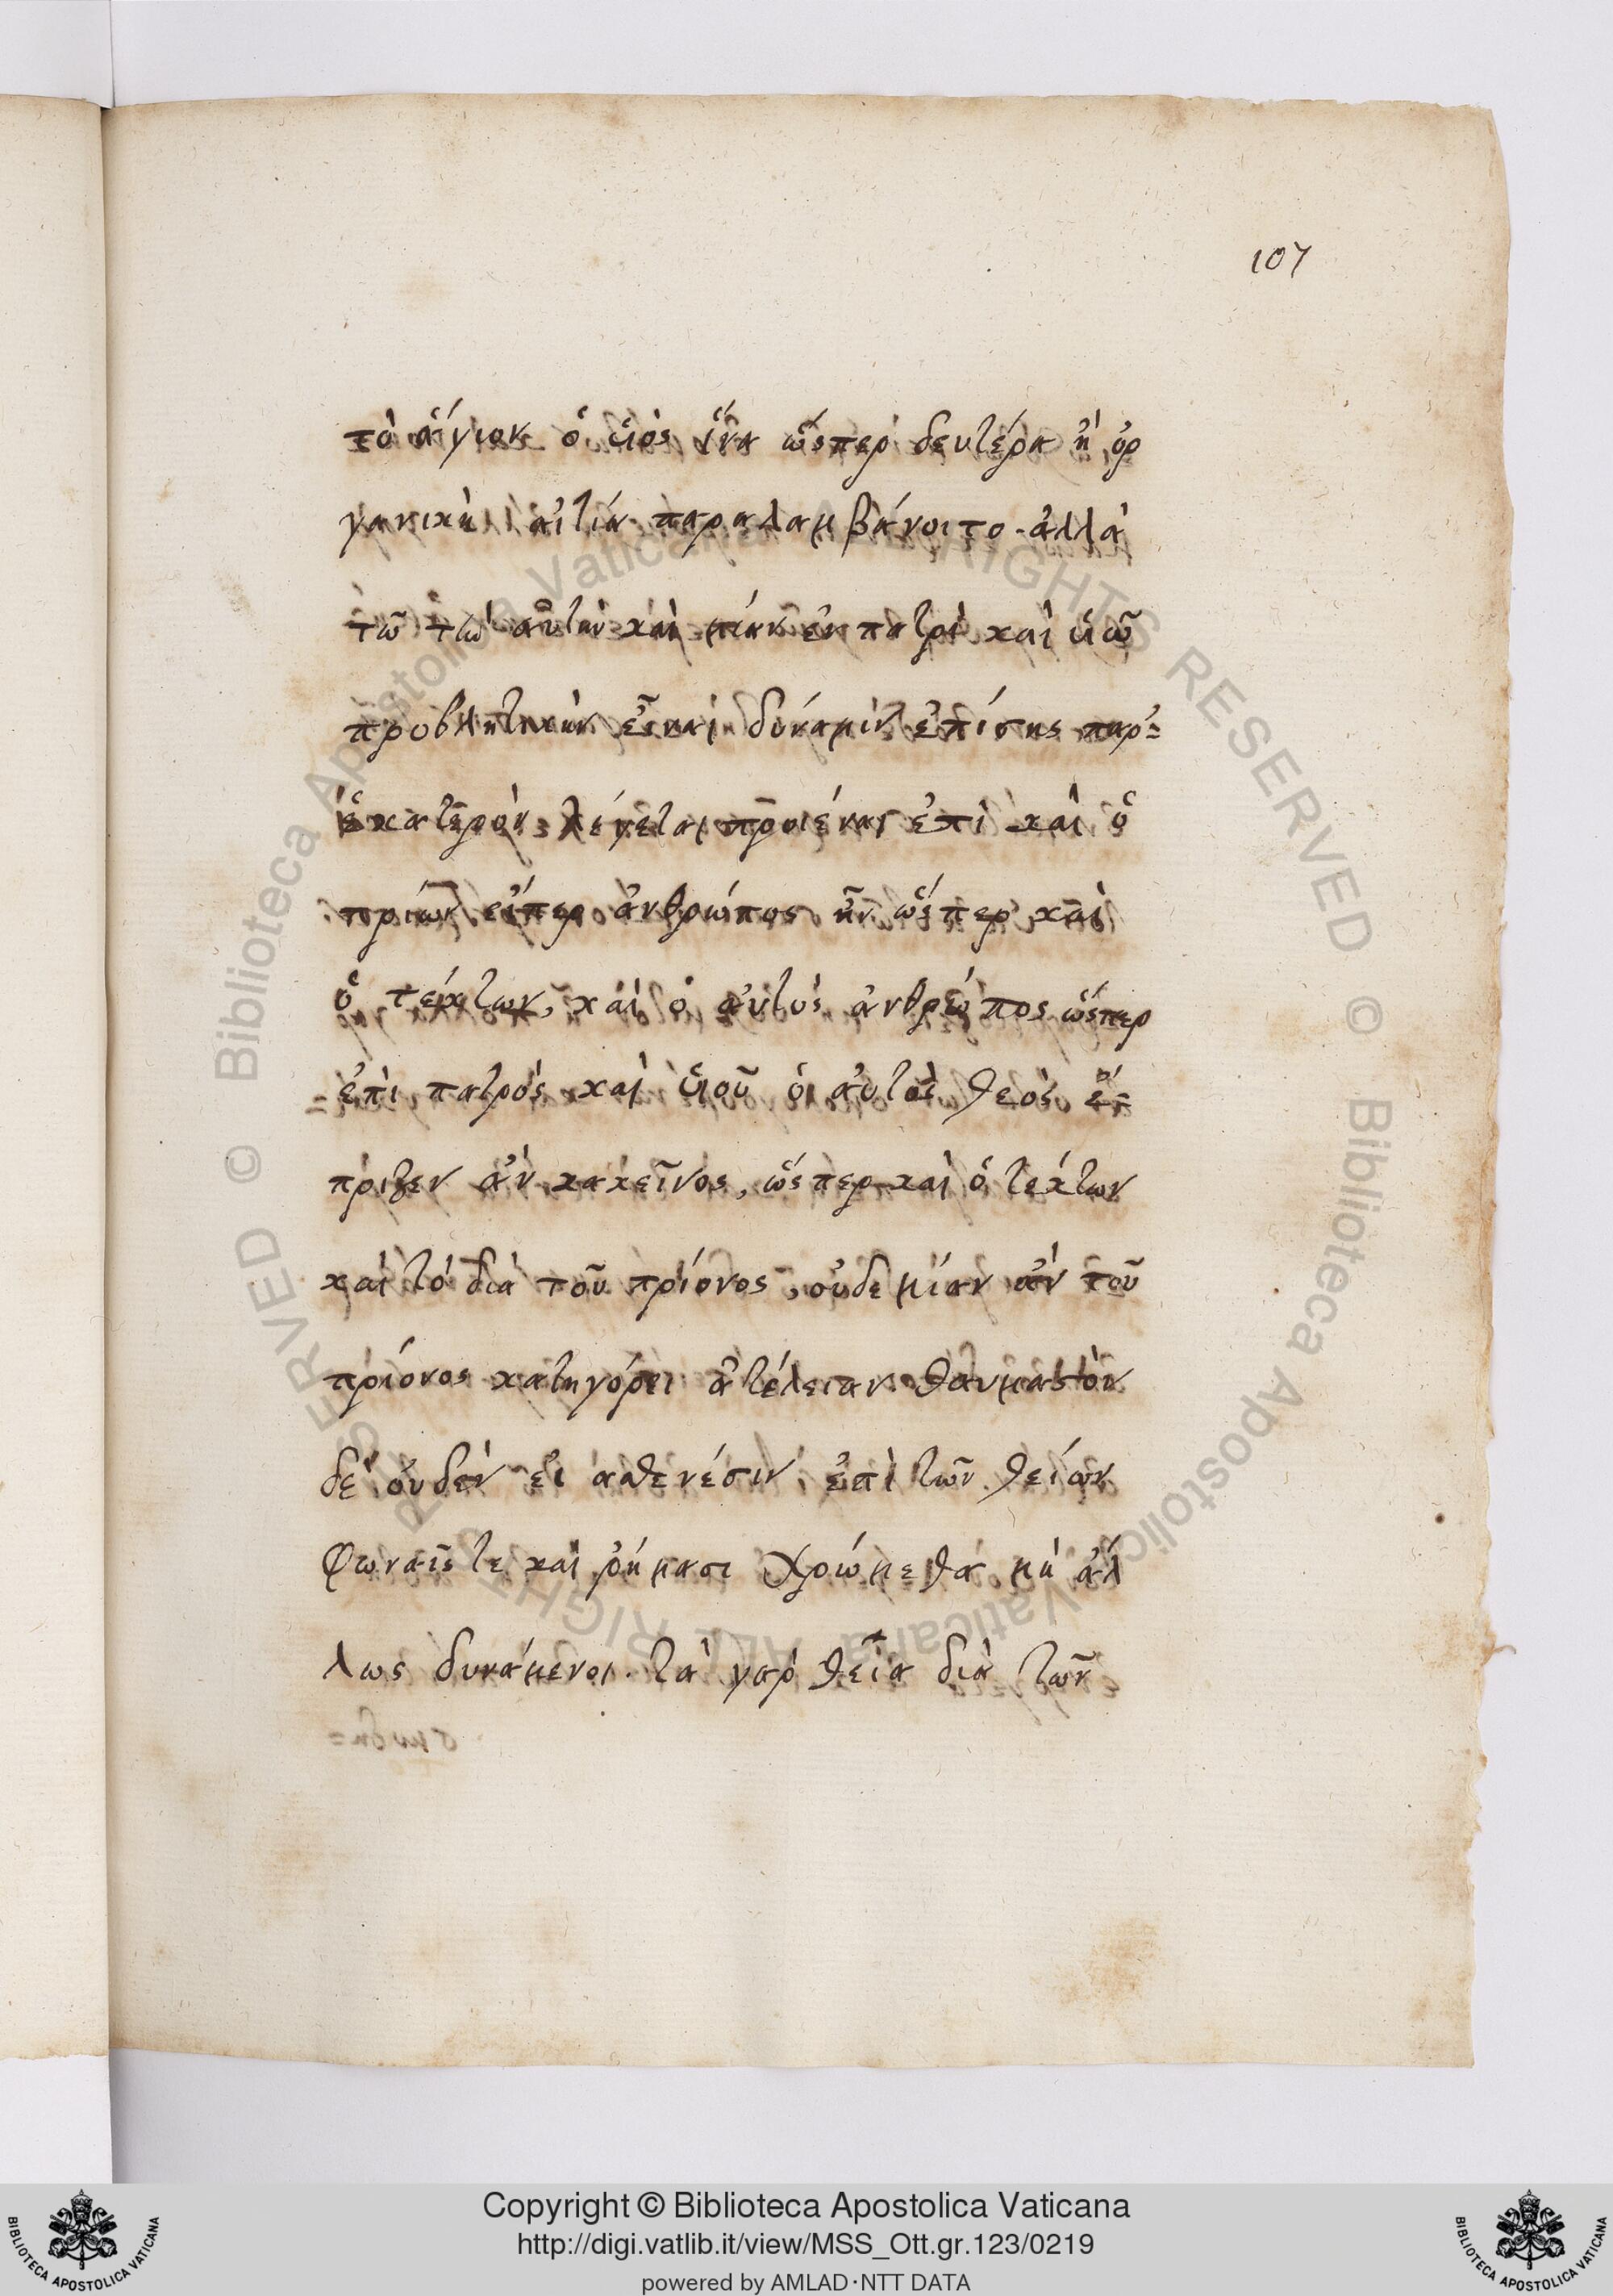 107
τὸ ἅγιον ὁ ὑιὸς ἵνα ὥσπερ δευτέρα ἢ ὀρ
γανικὴ αἰτία παραλαμβάνοιτο. ἀλλὰ
τῶ τὼ αὐτὴν καὶ μίαν ἐν πατρὶ καὶ ὑιῶ
προβλητικὴν εἶναι δύναμιν ἐπίσης παρ'=
ἑκατέρον λέγεται προιέναι ἐπὶ καὶ ὁ
πρίων εἴπερ ἀνθρώπος ἦν ὥσπερ καὶ
ὁ τέκτων, καὶ ὁ αὐτὸς ἀνθρώπος ὥσπερ
ἐπὶ πατρὸς καὶ ὑιοῦ ὁ αὐτὸς θεὸς ἔ=
πριζεν ἂν κακεῖνος, ὥσπερ καὶ ὁ τεκτων
καὶ τὸ διὰ τοῦ πρίονος, οὐδεμίαν ἂν τοῦ
πρίονος κατηγόρει ἀτέλειαν θαυμαστὸν
δὲ οὐδὲν εἰ ἀσθενέσιν ἐπὶ τῶν θείων
φωναῖς τε καὶ ῥήμασι χρώμεθα μὴ ἄλ
λως δυνάμενοι. τὰ γὰρ θεῖα διὰ τῶν
Copyright © Biblioteca Apostolica Vaticana
http://digi.vatlib.it/view/MSS_Ott.gr.123/0219
powered by AMLAD·NTT DATA
BIBLIOTECA APOSTOLICA VATICANA
BIBLIOTECA APOSTOLICA VATICANA